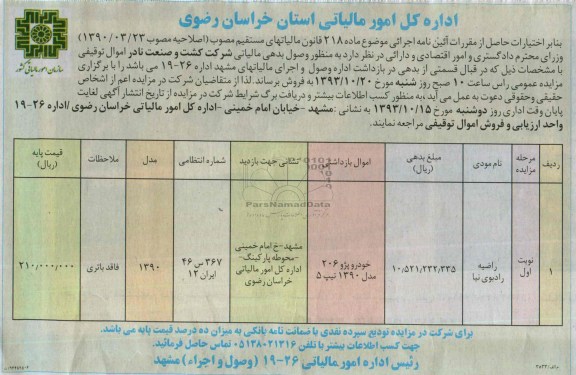 اداره کل امور مالیاتی استان خراسان رضوی
سازمان امور مالیاتی کشور
بنابر اختیارات حاصل از مقررات آئین نامه اجرائی موضوع ماده ۲۱۸ قانون مالیاتهای مستقیم مصوب (اصلاحیه مصوب ۱۳۹۰/۰۳/۲۳)
وزرای محترم دادگستری و امور اقتصادی و دارائی در نظر دارد به منظور وصول بدهی مالیاتی شرکت کشت و صنعت نادر اموال توقیفی
با مشخصات ذیل که در قبال قسمتی از بدهی در بازداشت اداره وصول و اجرای مالیاتهای مشهد اداره ۲۶-۱۹ می باشد را با برگزاری
مزایده عمومی راس ساعت ۱۰ صبح روز شنبه مورخ ۱۳۹۳/۱۰/۲۰ به فروش برساند. لذا از متقاضیان شرکت در مزایده اعم از اشخاص
حقیقی و حقوقی دعوت به عمل می آید به منظور کسب اطلاعات بیشتر و دریافت برگ شرایط شرکت در مزایده از تاریخ انتشار آگهی لغایت
پایان وقت اداری روز دوشنبه مورخ ۱۳۹۳/۱۰/۱۵ به نشانی :مشهد -خیابان امام خمینی -اداره کل امور مالیاتی خراسان رضوی /اداره ۲۶-۱۹
واحد ارزیابی و فروش اموال توقیفی مراجعه نمایند.
ردیف
مرحله مزایده
نام مودی
مبلغ بدهی (ریال)
اموال بازداشتی
نشانی جهت بازدید
شماره انتظامی
مدل
ملاحظات
قیمت پایه (ریال)
۱
نوبت اول
راضیه رادبوی نیا
۱۰,۵۲۱,۲۳۲,۲۳۵
خودرو پژو ۲۰۶ مدل ۱۳۹۰ تیپ ۵
مشهد-خ امام خمینی -محوطه پارکینگ- اداره کل امور مالیاتی خراسان رضوی
۳۶۷ س ۴۶ ایران ۱۲
۱۳۹۰
فاقد باتری
۲۱۰,۰۰۰,۰۰۰
ParsNamadData
برای شرکت در مزایده تودیع سپرده نقدی یا ضمانت نامه بانکی به میزان ده درصد قیمت پایه می باشد.
جهت کسب اطلاعات بیشتر با تلفن ۰۵۱۳۸۰۲۱۳۱۶ تماس حاصل فرمائید.
رئیس اداره امور مالیاتی ۲۶-۱۹ (وصول و اجراء) مشهد